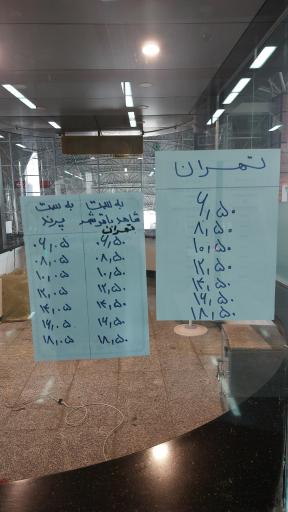 تهران
۶,۵۰
۸,۵۰
۱۰,۵۰
۱۲,۵۰
۱۴,۵۰
۱۶,۵۰
۱۸,۵۰
به سمت
شاهد باقرشهر
تهران
۰۶,۵۰
۰۸,۵۰
۱۰,۵۰
۱۲,۵۰
۱۴,۵۰
۱۶,۵۰
۱۸,۵۰
به سمت
پرند
۰۶,۰۵
۰۸,۰۵
۱۰,۰۵
۱۲,۰۵
۱۴,۰۵
۱۶,۰۵
۱۸,۰۵